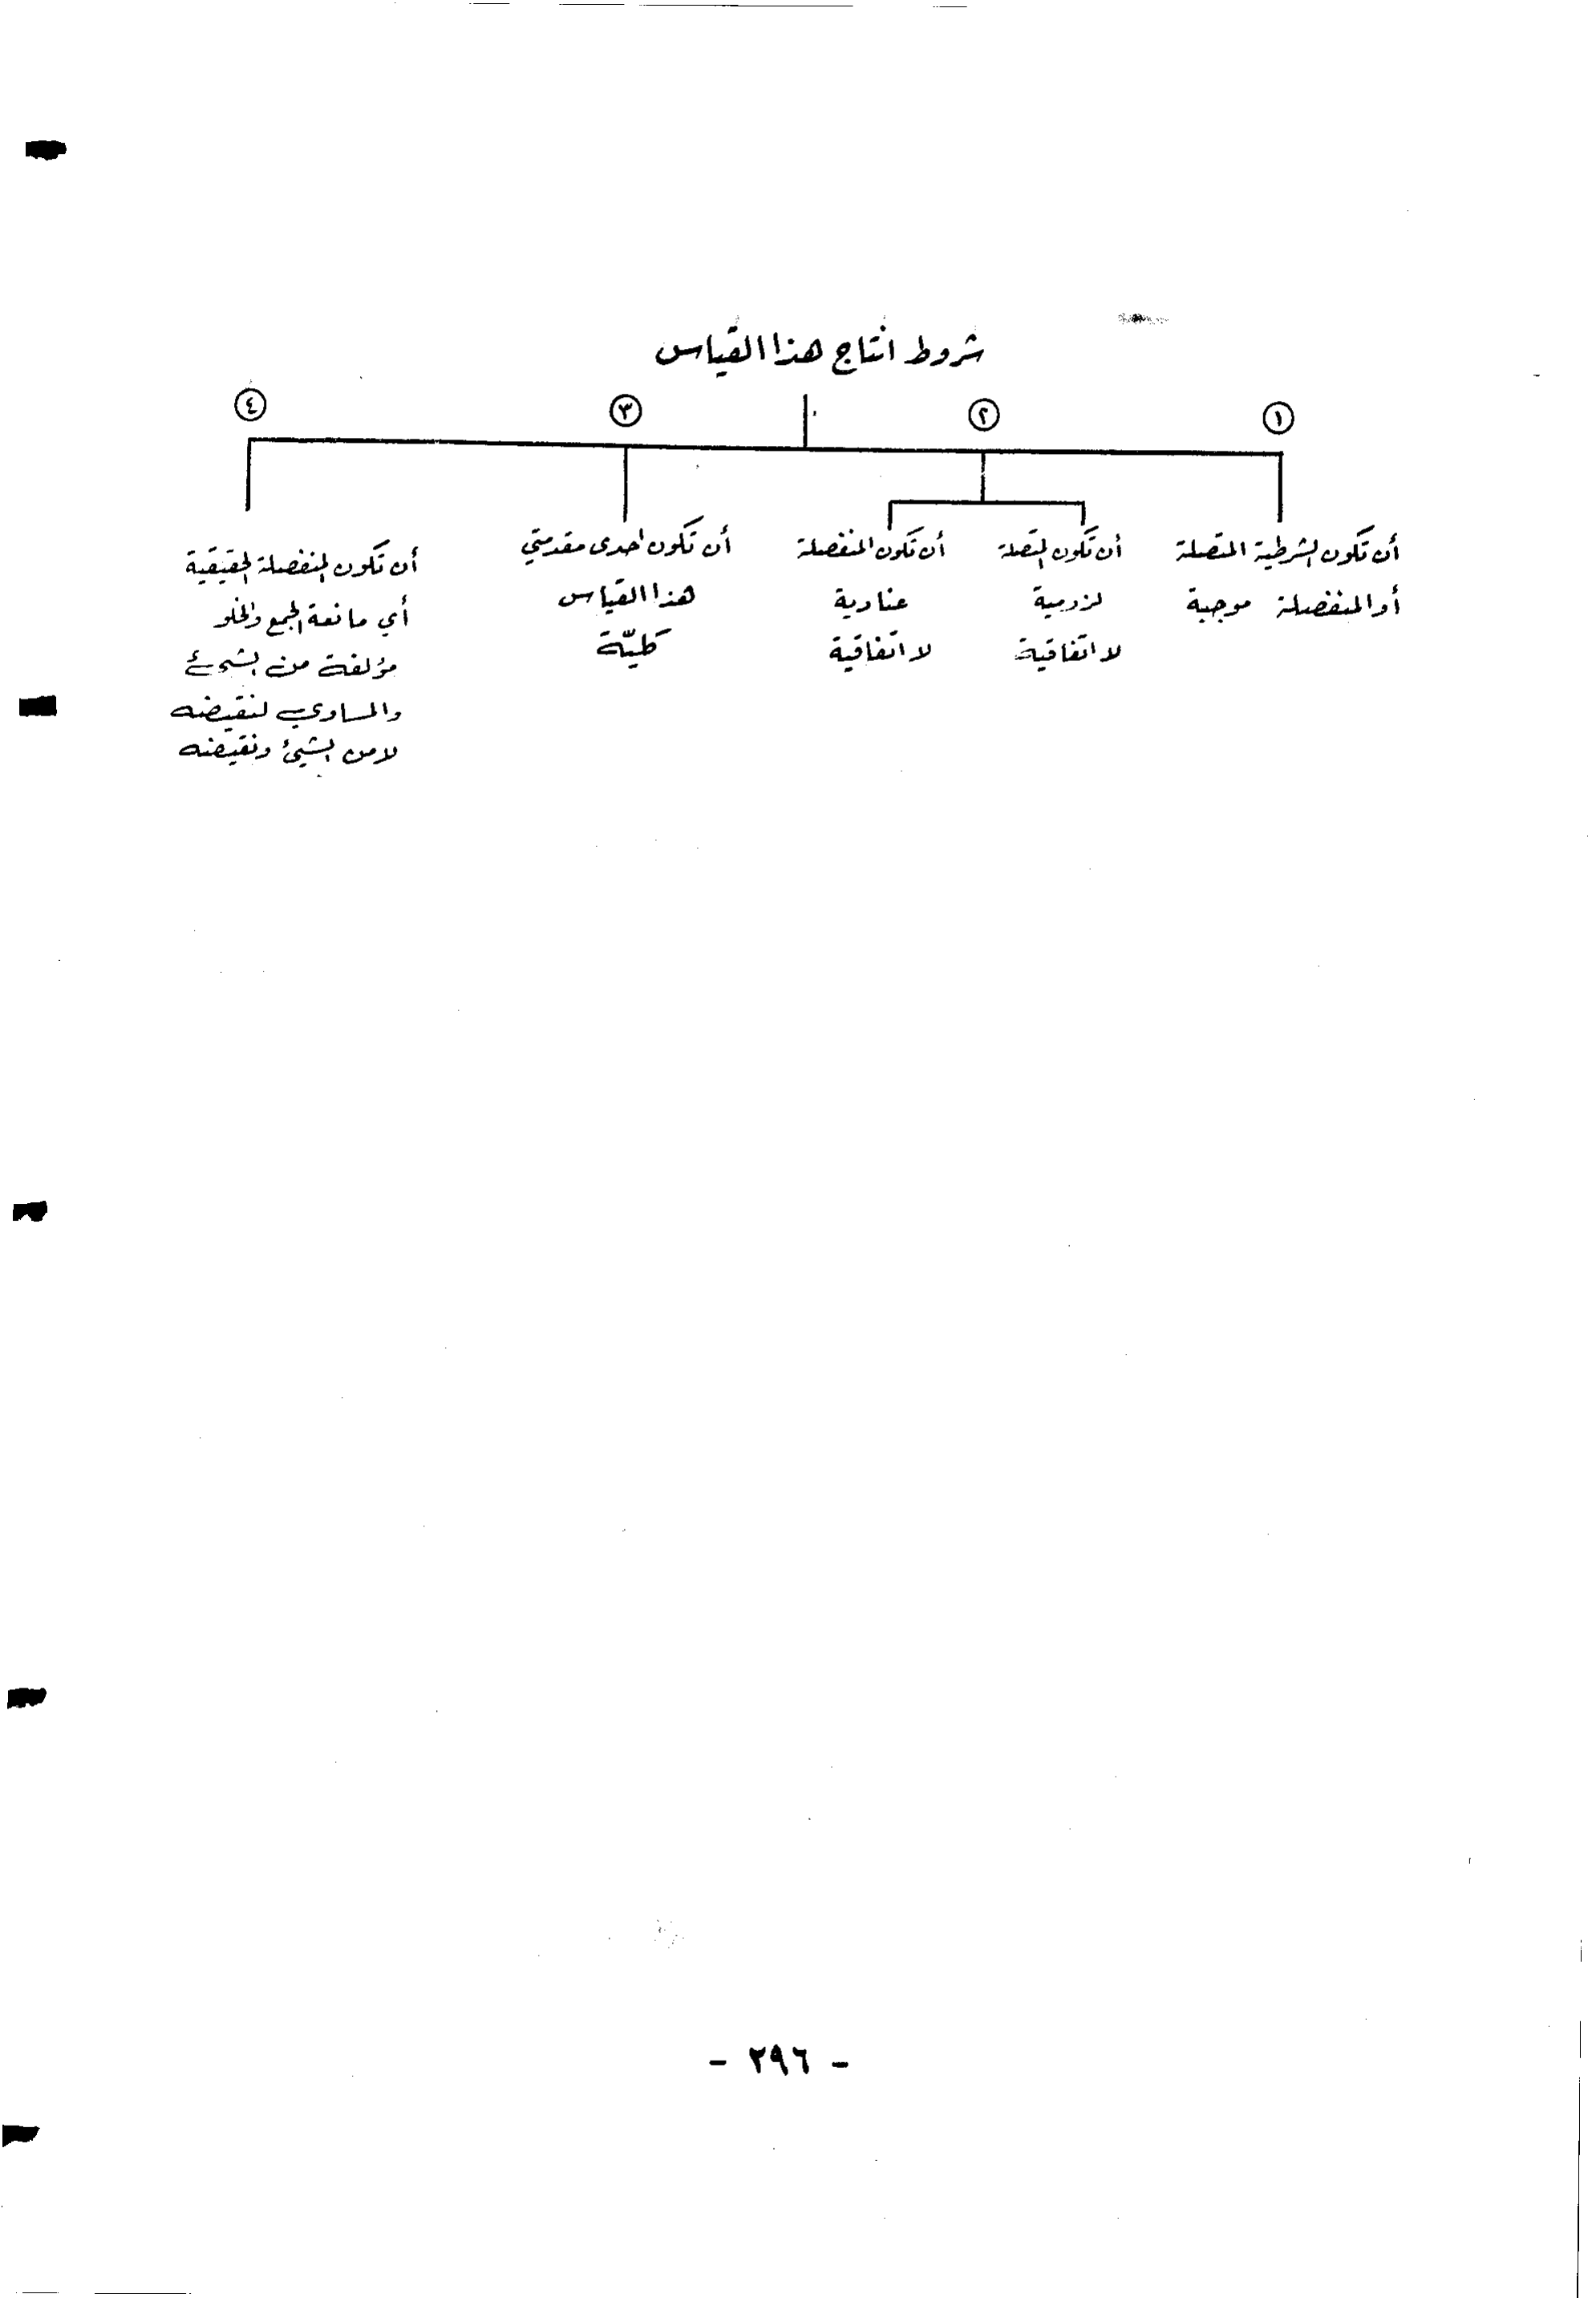 شروط انتاج هذا القياس
١
أن تكون الشرطية المتصلة
أو المنفصلة موجبة
٢
أن تكون المتصلة
لزومية
لا اتفاقية
أن تكون المنفصلة
عنادية
لا اتفاقية
٣
أن تكون احدى مقدمتي
هذا القياس
كليّة
٤
أن تكون المنفصلة الحقيقية
أي مانعة الجمع والخلو
مؤلفة من الشيء
والمساوي لنقيضه
لا من الشيئ ونقيضه
- ٢٩٦ -